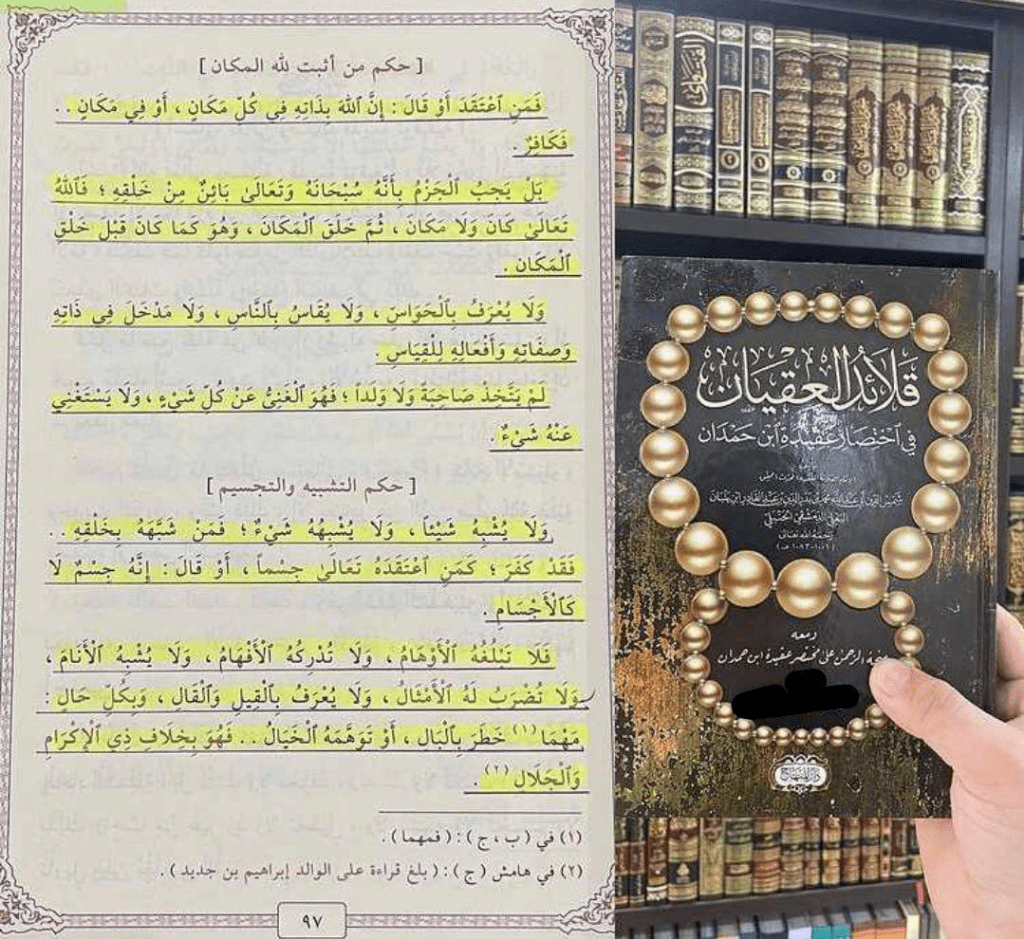 [ حكم من أثبت لله المكان ]
فَمَنِ ٱعْتَقَدَ أَوْ قَالَ : إِنَّ ٱللهَ بِذَاتِهِ فِي كُلِّ مَكَانٍ ، أَوْ فِي مَكَانٍ . .
فَكَافِرٌ .
بَلْ يَجِبُ ٱلْجَزْمُ بِأَنَّهُ سُبْحَانَهُ وَتَعَالَىٰ بَائِنٌ مِنْ خَلْقِهِ ؛ فَٱللهُ
تَعَالَىٰ كَانَ وَلَا مَكَانَ ، ثُمَّ خَلَقَ ٱلْمَكَانَ ، وَهُوَ كَمَا كَانَ قَبْلَ خَلْقِ
ٱلْمَكَانِ .
وَلَا يُعْرَفُ بِٱلْحَوَاسِّ ، وَلَا يُقَاسُ بِٱلنَّاسِ ، وَلَا مَدْخَلَ فِي ذَاتِهِ
وَصِفَاتِهِ وَأَفْعَالِهِ لِلْقِيَاسِ .
لَمْ يَتَّخِذْ صَاحِبَةً وَلَا وَلَداً ؛ فَهُوَ ٱلْغَنِيُّ عَنْ كُلِّ شَيْءٍ ، وَلَا يَسْتَغْنِي
عَنْهُ شَيْءٌ .
[ حكم التشبيه والتجسيم ]
وَلَا يُشْبِهُ شَيْئاً ، وَلَا يُشْبِهُهُ شَيْءٌ ؛ فَمَنْ شَبَّهَهُ بِخَلْقِهِ . .
فَقَدْ كَفَرَ ؛ كَمَنِ ٱعْتَقَدَهُ تَعَالَىٰ جِسْماً ، أَوْ قَالَ : إِنَّهُ جِسْمٌ لَا
كَٱلْأَجْسَامِ .
فَلَا تَبْلُغُهُ ٱلْأَوْهَامُ ، وَلَا تُدْرِكُهُ ٱلْأَفْهَامُ ، وَلَا يُشْبِهُ ٱلْأَنَامَ ،
وَلَا تُضْرَبُ لَهُ ٱلْأَمْثَالُ ، وَلَا يُعْرَفُ بِٱلْقِيلِ وَٱلْقَالِ ، وَبِكُلِّ حَالٍ :
مَهْمَا (١) خَطَرَ بِٱلْبَالِ ، أَوْ تَوَهَّمَهُ ٱلْخَيَالُ . . فَهُوَ بِخِلَافِ ذِي ٱلْإِكْرَامِ
وَٱلْجَلَالِ (٢) .
(١) في ( ب ، ج ) : ( فمهما ) .
(٢) في هامش ( ج ) : ( بلغ قراءة على الوالد إبراهيم بن جديد ) .
٩٧
قلائد العقيان
في اختصار عقيدة ابن حمدان
شمس الدين أبي عبد الله محمد بن بدر الدين بن عبد القادر ابن بلبان
البعلي الدمشقي الحنبلي
رحمه الله تعالى
(١٠٠٦-١٠٨٣ هـ)
ومعه
الرحمن على مختصر عقيدة ابن حمدان
دار المنهاج